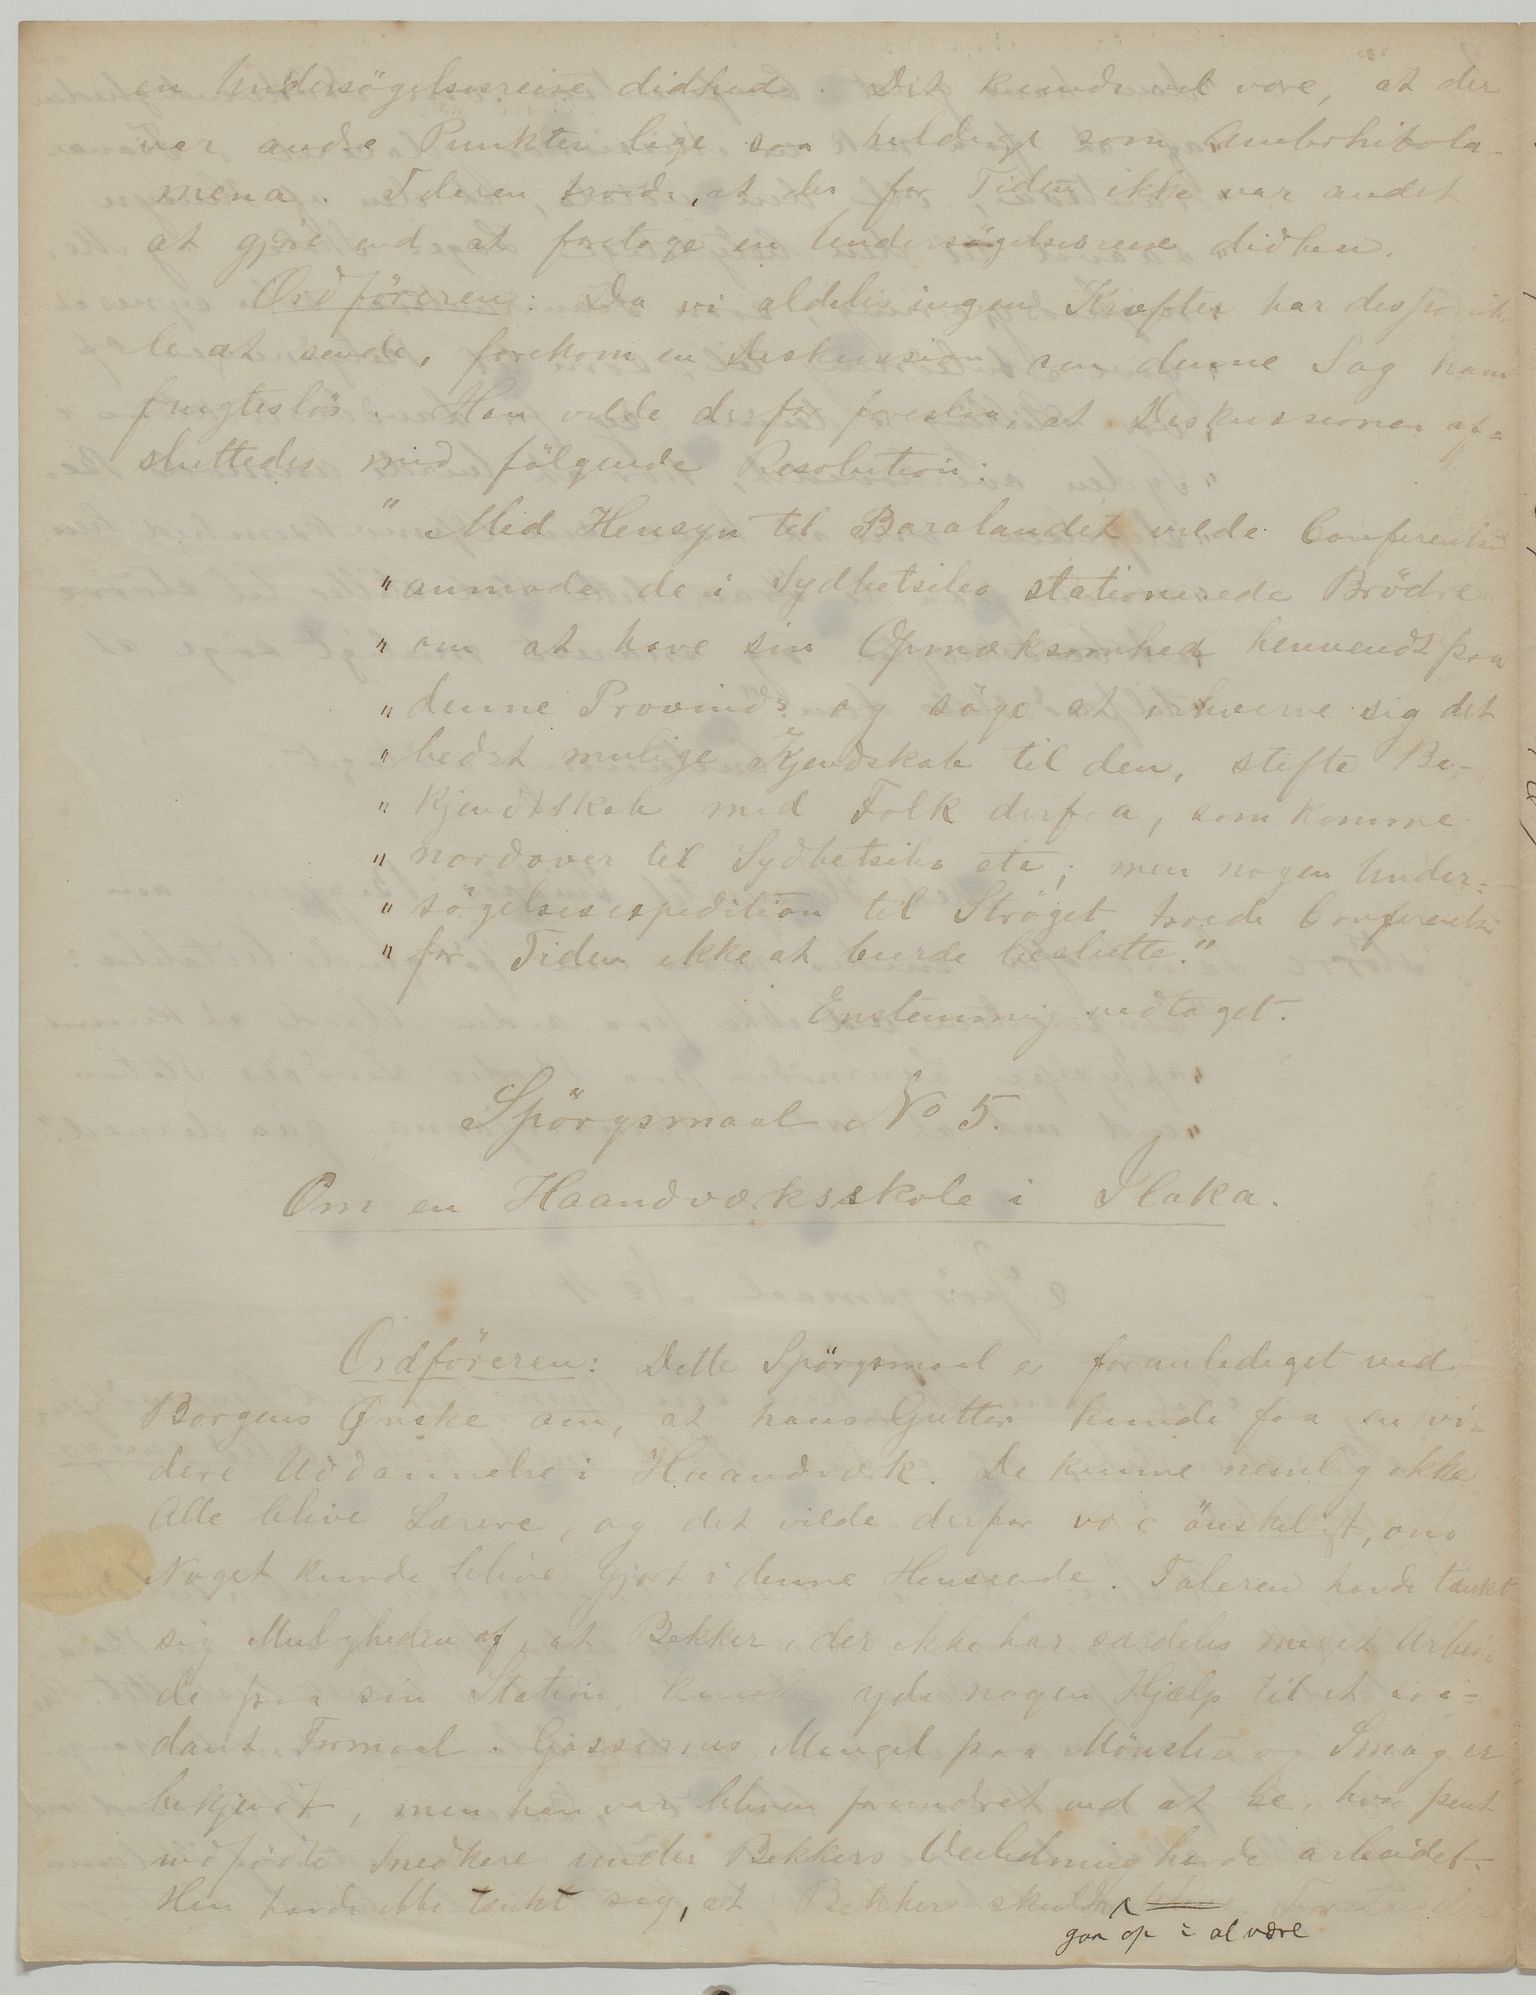 en Undersögelsesreise didhen. Det kunde vel være, at der
var andre Punkter lige saa heldige som Ambohitola-
mena. Taleren troede, at der for Tiden ikke var andet
at gjöre end at foretage en Undersögelsesreise didhen.
Ordföreren: Da vi aldeles ingen Kræfter har disponib-
le at sende, forekom en Diskussion om denne Sag ham
frugteslös. Han vilde derfor foreslaa, at Diskussionen af=
sluttedes med fölgende Resolution:
" Med Hensyn til Baralandet vilde Conferentsen
" anmode de i Sydbetsileo stationerede Brödre
" om at have sin Opmærksomhed henvendt paa
" denne Provinds og söge at erhverve sig det
" bedst mulige Kjendskab til den, stifte Be-
" kjendtskab med Folk derfra, som komme
" nordover til Sydbetsileo etc; men nogen Under=
" sögelsesexpedition til Ströget troede Conferentsen
" for Tiden ikke at burde beslutte."
Enstemmig vedtaget.
Spörgsmaal No 5.
Om en Haandværksskole i Ilaka.
Ordföreren: Dette Spörgsmaal er foranlediget ved
Borgens Ønske om, at hans Gutter kunde faa en vi=
dere Uddannelse i Haandværk. De kunne nemlig ikke
Alle blive Lærere, og det vilde derfor være önskeligt, om
Noget kunde blive gjort i denne Henseende. Taleren havde tænkt
sig Muligheden af, at Bekker, der ikke har særdeles meget Arbei-
de paa sin Station, kunde yde nogen Hjælp til et saa=
dant Formaal. Gassernes Mangel paa Mönster og Smag er
bekjendt, men han var bleven forundret ved at se, hvor pent
indfödte Snedkere under Bekkers Veiledning havde arbeidet.
Han havde ikke tænkt sig, at Bekker skulde
gaa op i at være